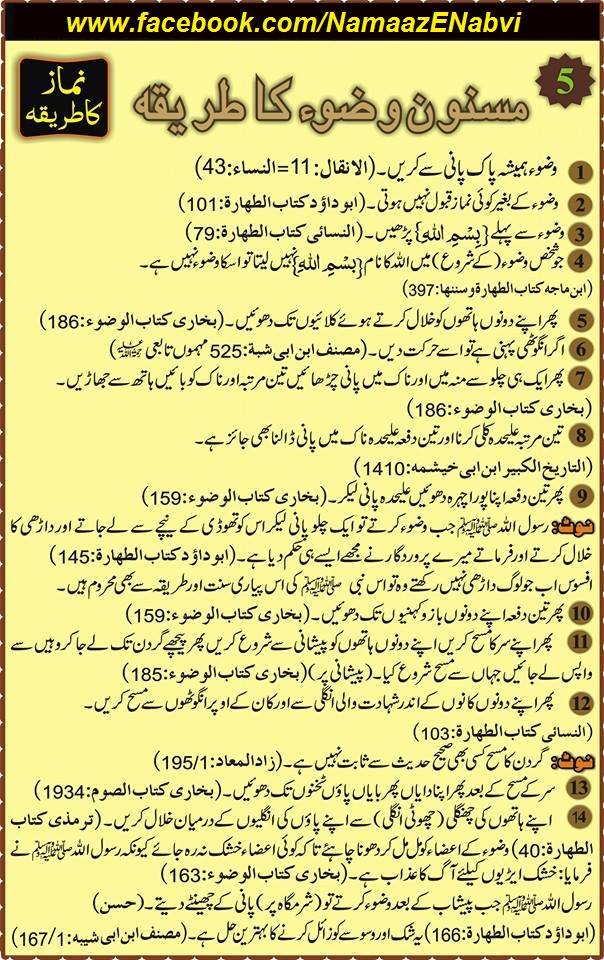 www.facebook.com/NamaazENabvi
نماز
کا طریقہ
مسنون وضوء کا طریقہ
5
1 وضوء ہمیشہ پاک پانی سے کریں۔ (الانفال:11=النساء:43)
2 وضوء کے بغیر کوئی نماز قبول نہیں ہوتی۔ (ابوداؤد کتاب الطهارة:101)
3 وضوء سے پہلے {بِسْمِ اللهِ} پڑھیں۔ (النسائی کتاب الطهارة:79)
4 جو شخص وضوء (کے شروع) میں اللہ کا نام {بِسْمِ اللهِ} نہیں لیتا تو اسکا وضوء نہیں ہے۔
(ابن ماجه کتاب الطهارة وسننها:397)
5 پھر اپنے دونوں ہاتھوں کو خلال کرتے ہوئے کلائیوں تک دھوئیں۔ (بخاری کتاب الوضوء:186)
6 اگر انگوٹھی پہنی ہے تو اسے حرکت دیں۔ (مصنف ابن ابی شبة:525 مہموں تابعی رحمۃ اللہ علیہ)
7 پھر ایک ہی چلو سے منہ میں اور ناک میں پانی چڑھائیں تین مرتبہ اور ناک کو بائیں ہاتھ سے جھاڑیں۔
(بخاری کتاب الوضوء:186)
8 تین مرتبہ علیحدہ کلی کرنا اور تین دفعہ علیحدہ ناک میں پانی ڈالنا بھی جائز ہے۔
(التاریخ الکبیر ابن ابی خیشمه:1410)
9 پھر تین دفعہ اپنا پورا چہرہ دھوئیں علیحدہ پانی لیکر۔ (بخاری کتاب الوضوء:159)
نوٹ: رسول اللہ ﷺ جب وضوء کرتے تو ایک چلو پانی لیکر اس کو تھوڈی کے نیچے سے لے جاتے اور داڑھی کا
خلال کرتے اور فرماتے میرے پروردگار نے مجھے ایسے ہی حکم دیا ہے۔ (ابوداؤد کتاب الطهارة:145)
افسوس اب جو لوگ داڑھی نہیں رکھتے وہ تو اس نبی ﷺ کی اس پیاری سنت اور طریقہ سے بھی محروم ہیں۔
10 پھر تین دفعہ اپنے دونوں بازو کہنیوں تک دھوئیں۔ (بخاری کتاب الوضوء:159)
11 پھر اپنے سر کا مسح کریں اپنے دونوں ہاتھوں کو پیشانی سے شروع کریں پھر پیچھے گردن تک لے جا کر وہیں سے
واپس لے جائیں جہاں سے مسح شروع کیا۔ (پیشانی پر) (بخاری کتاب الوضوء:185)
12 پھر اپنے دونوں کانوں کے اندر شہادت والی انگلی سے اور کان کے اوپر انگوٹھوں سے مسح کریں۔
(النسائی کتاب الطهارة:103)
نوٹ: گردن کا مسح کسی بھی صحیح حدیث سے ثابت نہیں ہے۔ (زادالمعاد:195/1)
13 سر کے مسح کے بعد پھر اپنا دایاں پھر بایاں پاؤں ٹخنوں تک دھوئیں۔ (بخاری کتاب الصوم:1934)
14 اپنے ہاتھوں کی چھنگلی (چھوٹی انگلی) سے اپنے پاؤں کی انگلیوں کے درمیان خلال کریں۔ (ترمذی کتاب
الطهارة:40) وضوء کے اعضاء کو مل مل کر دھونا چاہئے تاکہ کوئی اعضاء خشک نہ رہ جائے کیونکہ رسول اللہ ﷺ نے
فرمایا: خشک ایڑیوں کیلئے آگ کا عذاب ہے۔ (بخاری کتاب الوضوء:163)
رسول اللہ ﷺ جب پیشاب کے بعد وضوء کرتے تو (شرمگاہ پر) پانی کے چھینٹے دیتے۔ (حسن)
(ابوداؤد کتاب الطهارة:166) یہ شک اور وسوسے کو زائل کرنے کا بہترین حل ہے۔ (مصنف ابن ابی شیبه:167/1)